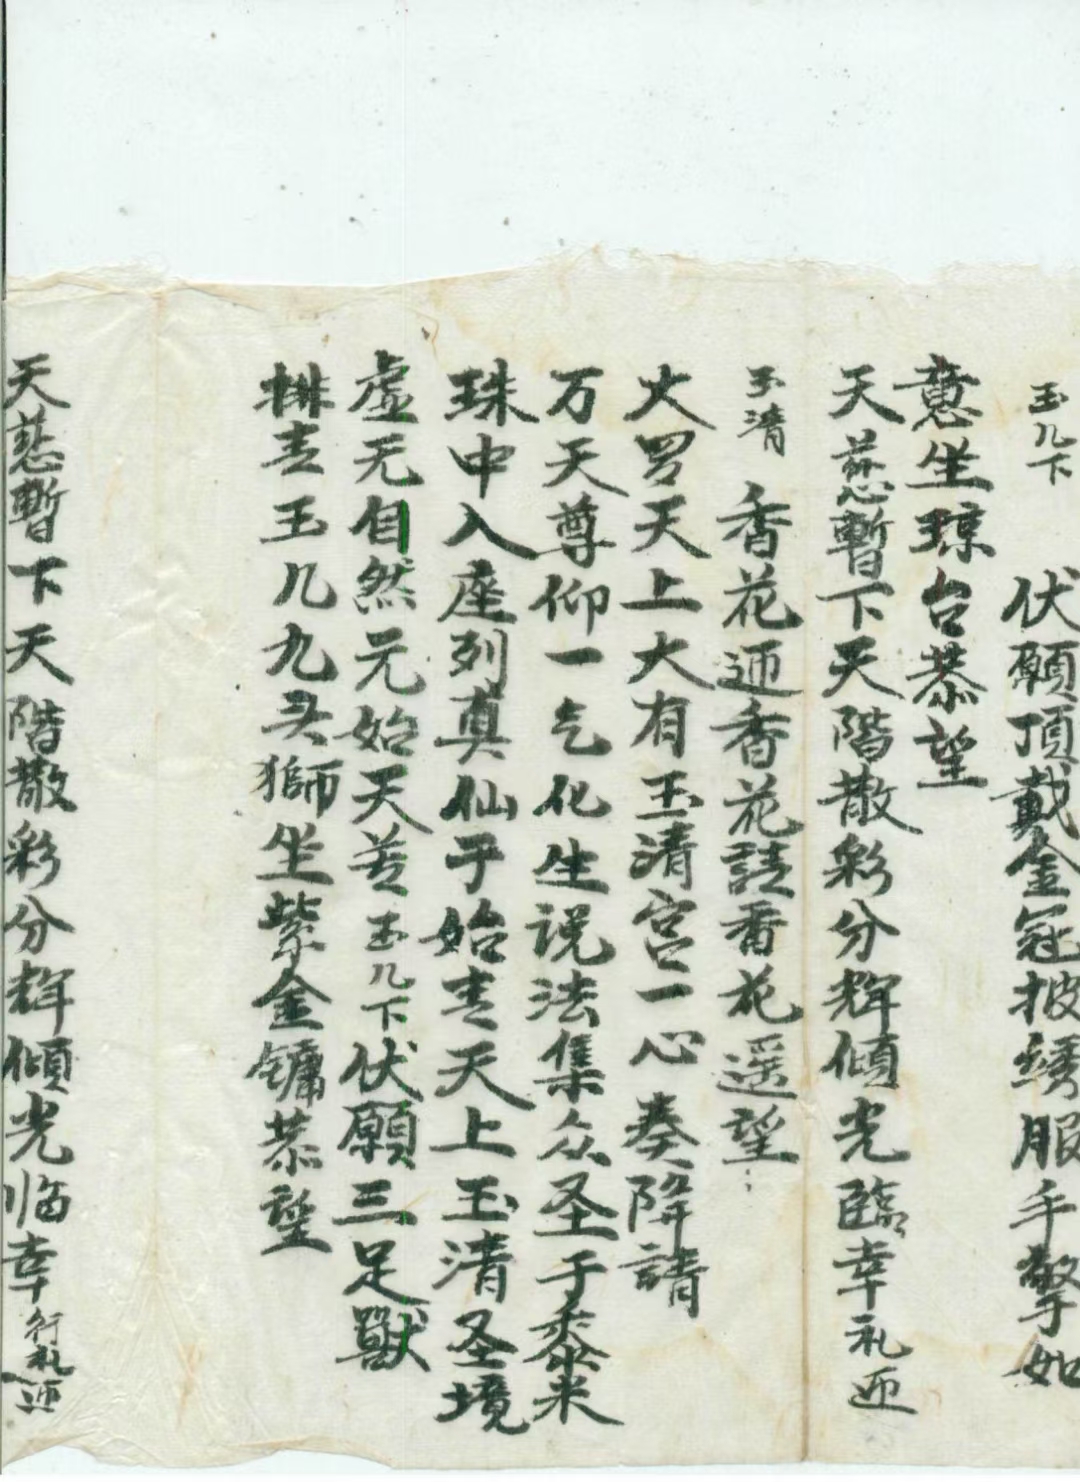 玉几下 伏願頂戴金冠披绣服手擎如
意坐琼台恭望
天慈暫下天階散彩分輝傾光臨幸礼迎
玉清 香花迎香花請香花遥望
大罗天上大有玉清宫一心奏降請
万天尊仰一气化生说法集众圣于黍米
珠中入座列真仙于始青天上玉清圣境
虚无自然元始天尊玉几下伏願三足獸
排青玉几九头獅坐紫金鏞恭望
天慈暫下天階散彩分輝傾光临幸行礼迎